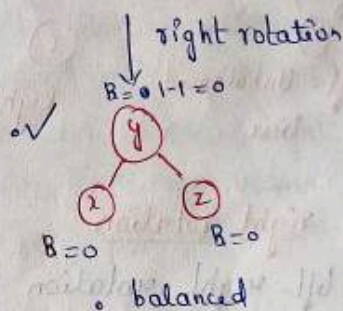 right rotation
B=0 1-1=0
y
x z
B=0 B=0
balanced